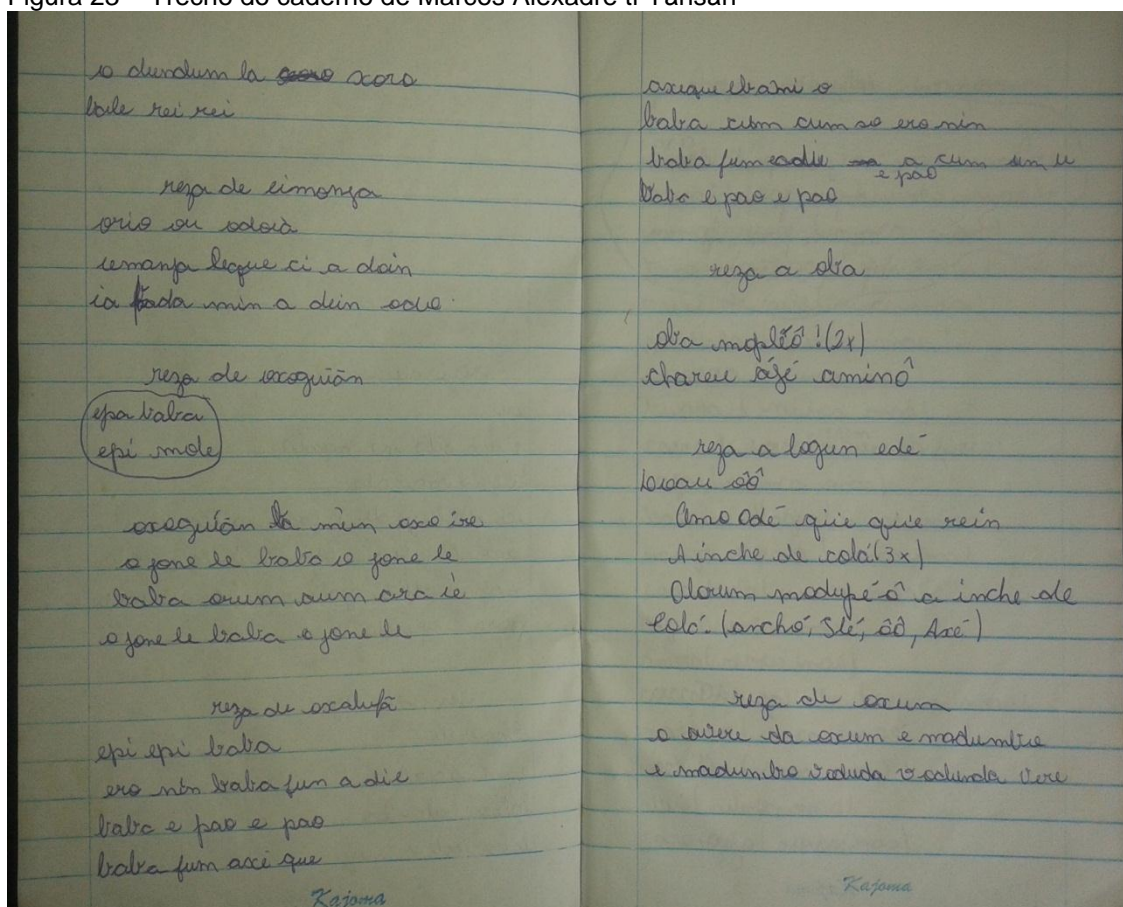 Figura 28 – Trecho do caderno de Marcos Alexadre ti Yansan
o dundum la xoro
baile rei rei
reza de eimonja
orio ou odoià
iemanja leque ci a doin
ia fada min a dein odo
reza de oxoguiãn
epa baba
epi mole
oxoguiãn la mim oxo ire
o jone le baba o jone le
baba orum aum ara ié
o jone le baba o jone le
reza de oxalufã
epi epi baba
ero nin baba fun a die
baba e pao e pao
baba fum axi que
Kajoma
axeque ebami o
baba cum cum so ero nin
baba fum eadie a cum sem u
e pao
baba e pao e pao
reza a oba
oba moplêô! (2x)
chareu ôjé aminô
reza a logun edé
ôô
Omo Odé quie quie rein
A inche de coló. (3x)
Olorum modupé ô a inche de
Coló. (anchó, Slé, ôô, Axé)
reza de oxum
o da oxum e madumbie
e madumbo vere
Kajoma